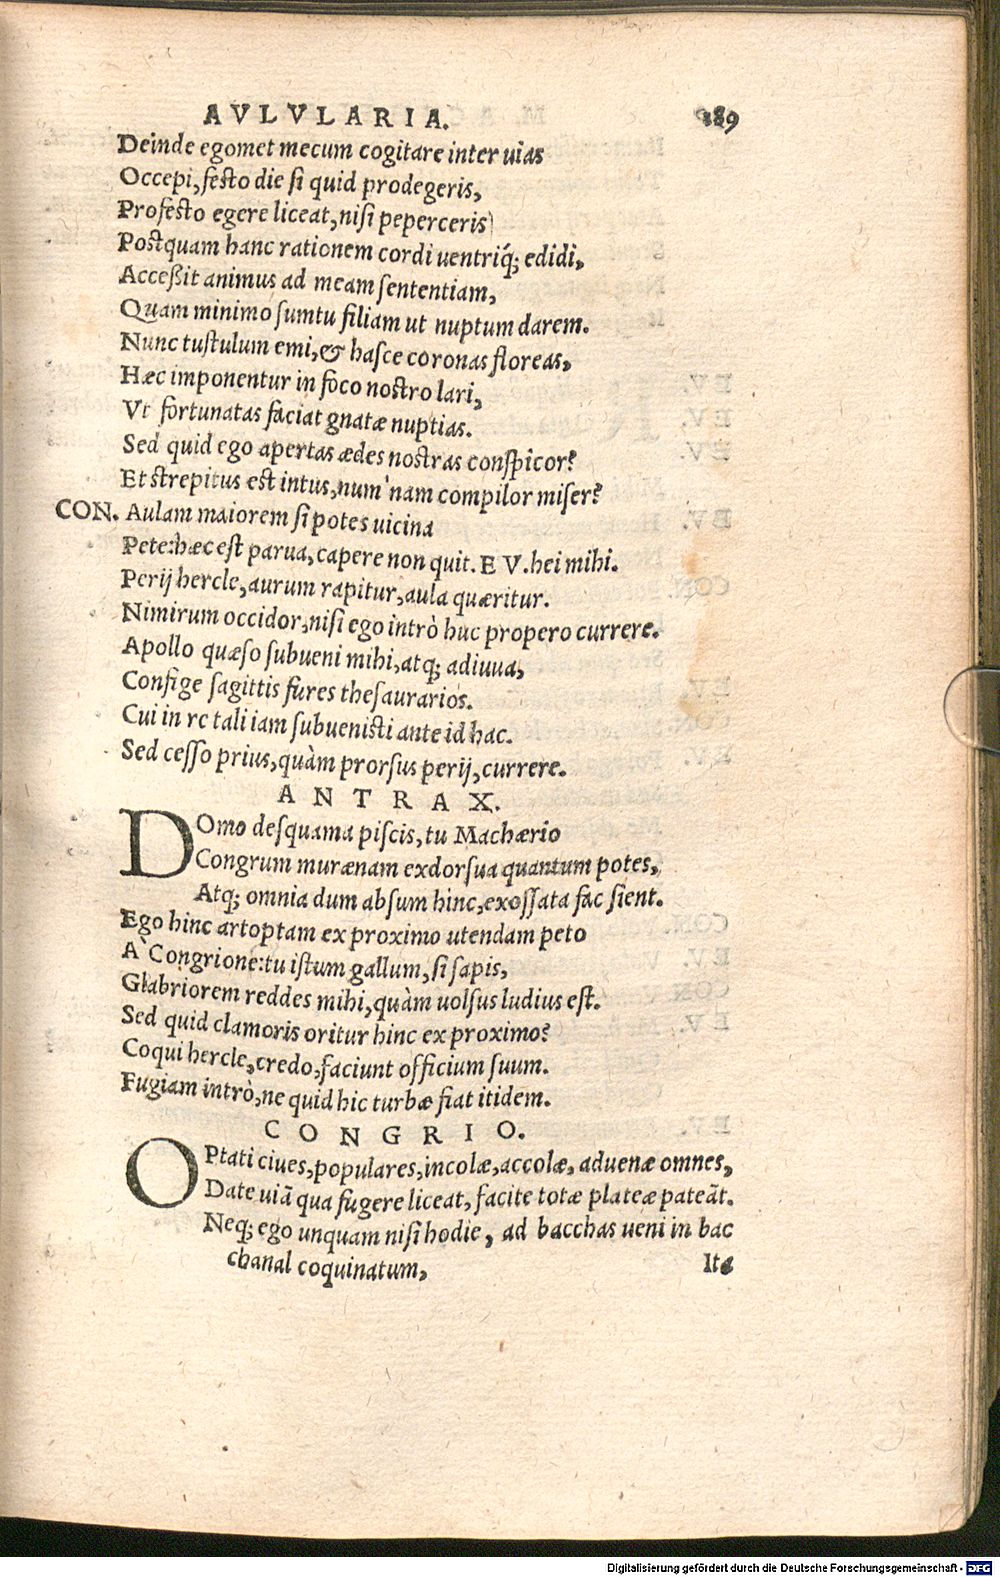 AVLVLARIA. 189
Deinde egomet mecum cogitare inter uias
Occepi, festo die si quid prodegeris,
Profesto egere liceat, nisi peperceris)
Postquam hanc rationem cordi uentriq́; edidi,
Acceßit animus ad meam sententiam,
Quam minimo sumtu filiam ut nuptum darem.
Nunc tustulum emi, & hasce coronas floreas,
Hæc imponentur in foco nostro lari,
Vt fortunatas faciat gnatæ nuptias.
Sed quid ego apertas ædes nostras conspicor?
Et strepitus est intus, num'nam compilor miser?
CON. Aulam maiorem si potes uicina
Pete: hæc est parua, capere non quit. EV. hei mihi.
Perij hercle, aurum rapitur, aula quæritur.
Nimirum occidor, nisi ego intrò huc propero currere.
Apollo quæso subueni mihi, atq; adiuua,
Confige sagittis fures thesaurarios.
Cui in re tali iam subuenisti ante id hac.
Sed cesso prius, quàm prorsus perij, currere.
ANTRAX.
DOmo desquama piscis, tu Machærio
Congrum murænam exdorsua quantum potes,
Atq; omnia dum absum hinc, exossata fac sient.
Ego hinc artoptam ex proximo utendam peto
A` Congrione: tu istum gallum, si sapis,
Glabriorem reddes mihi, quàm uolsus ludius est.
Sed quid clamoris oritur hinc ex proximo?
Coqui hercle, credo, faciunt officium suum.
Fugiam intrò, ne quid hic turbæ fiat itidem.
CONGRIO.
OPtati ciues, populares, incolæ, accolæ, aduenæ omnes,
Date uiã qua fugere liceat, facite totæ plateæ pateãt.
Neq; ego unquam nisi hodie, ad bacchas ueni in bac
chanal coquinatum, Ita
Digitalisierung gefördert durch die Deutsche Forschungsgemeinschaft - DFG